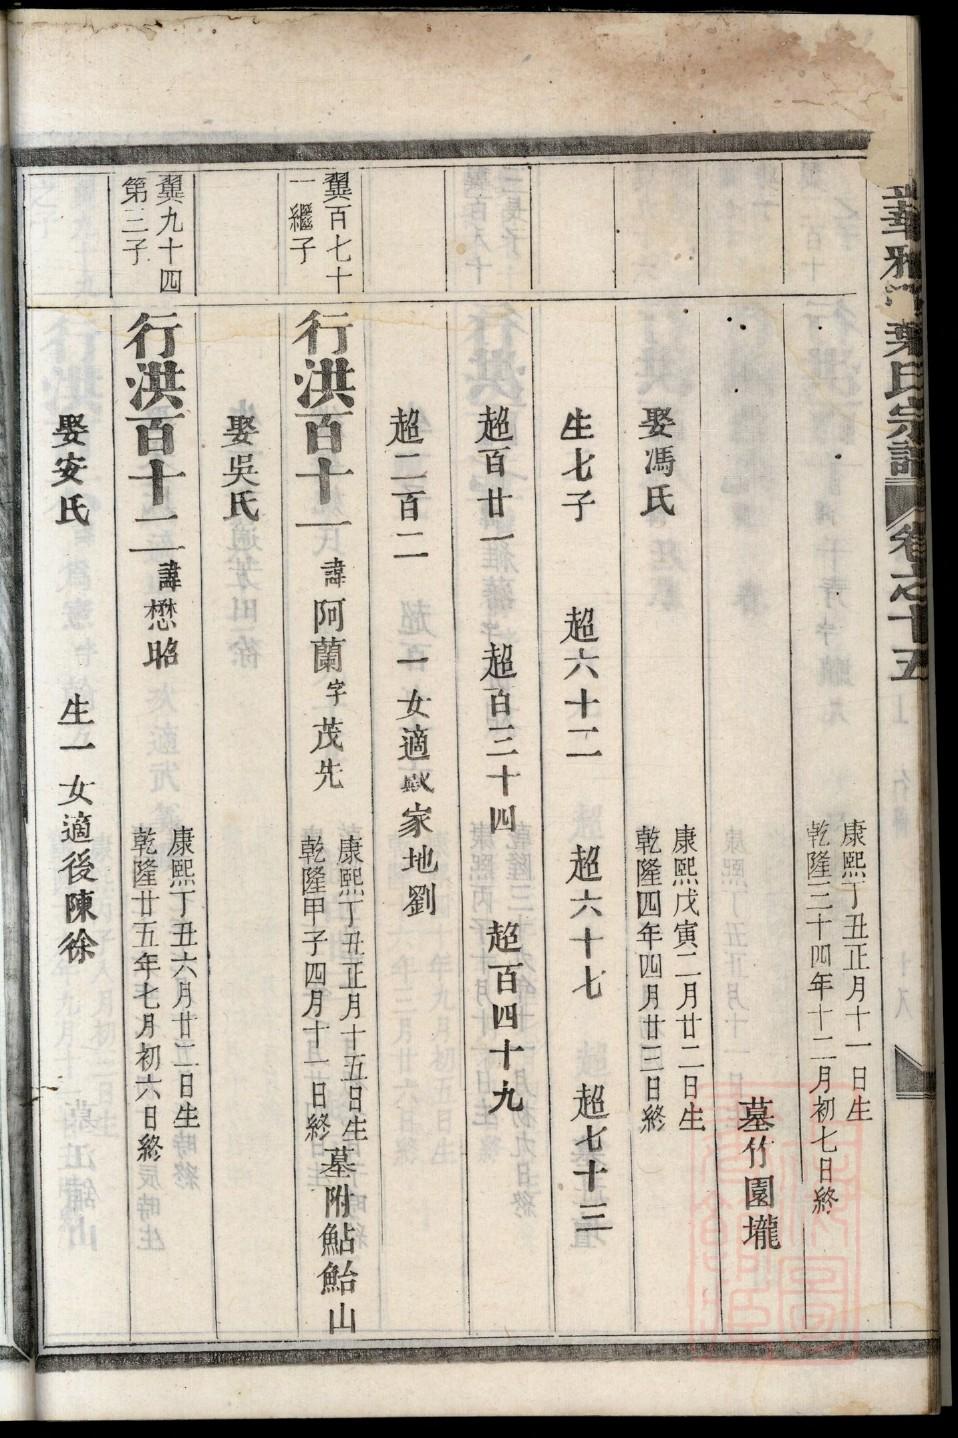 葉氏宗譜 卷之十五
康熙丁丑正月十一日生
乾隆三十四年十二月初七日終
墓竹園壠
康熙戊寅二月廿二日生
乾隆四年四月廿三日終
娶馮氏
生七子 超六十二 超六十七 超七十三
超百廿一 超百三十四 超百四十九
超二百二 一女適 家地劉
翼百七十
一繼子
行洪百十一 諱阿蘭字茂先
康熙丁丑正月十五日生
乾隆甲子四月十一日終
墓附鮎鮐山
娶吳氏
翼九十四
第三子
行洪百十二 諱懋昭
康熙丁丑六月廿二日生
乾隆廿五年七月初六日終
娶安氏 生一女適後陳徐